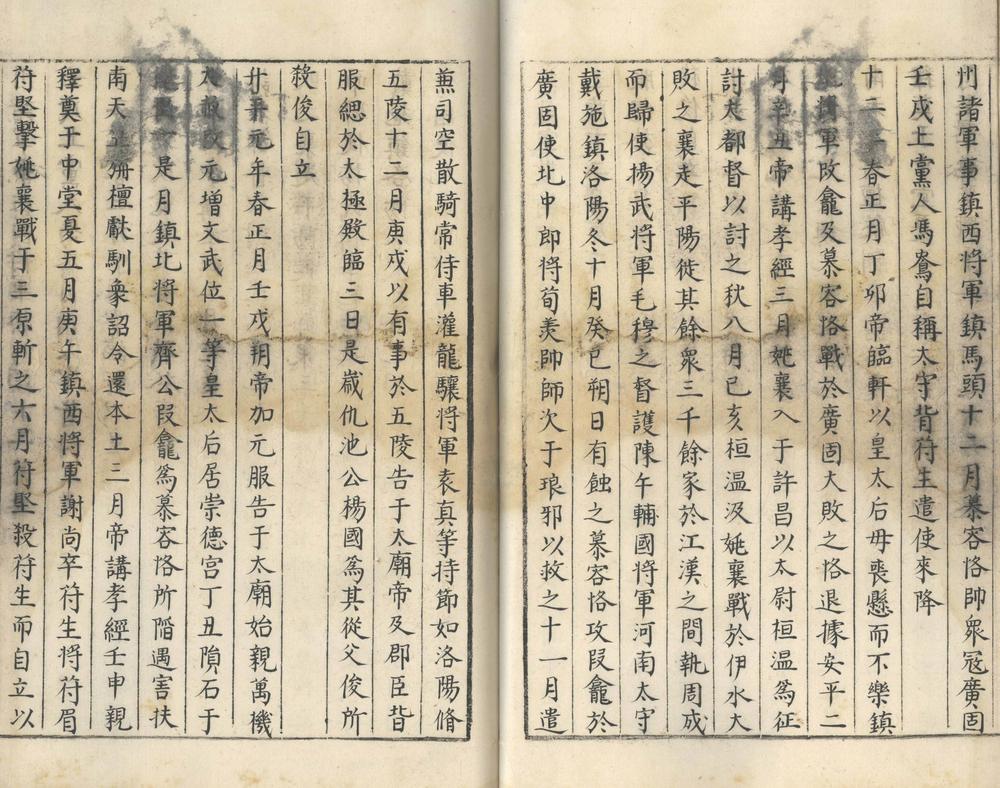 州諸軍事鎮西將軍鎮馬頭十二月慕容恪帥衆冦廣固
壬戌上黨人馮鴦自稱太守背苻生遣使來降
十二年春正月丁卯帝臨軒以皇太后母喪懸而不樂鎮
將軍叚龕及慕容恪戰於廣固大敗之恪退據安平二
月辛丑帝講孝經三月姚襄入于許昌以太尉桓温爲征
討大都督以討之秋八月已亥桓温及姚襄戰於伊水大
敗之襄走平陽徙其餘衆三千餘家於江漢之間執周成
而歸使揚武將軍毛穆之督護陳午輔國將軍河南太守
戴施鎮洛陽冬十月癸巳朔日有蝕之慕容恪攻叚龕於
廣固使北中郎將荀羡帥師次于琅邪以救之十一月遣
兼司空散騎常侍車灌龍驤將軍袁真等持節如洛陽脩
五陵十二月庚戌以有事於五陵告于太廟帝及郡臣皆
服緦於太極殿臨三日是歲仇池公楊國爲其從父俊所
殺俊自立
升平元年春正月壬戌朔帝加元服告于太廟始親萬機
大赦改元增文武位一等皇太后居崇德宮丁丑隕石于
是月鎮北將軍齊公叚龕爲慕容恪所陷遇害扶
南天竺旃檀獻馴象詔令還本土三月帝講孝經壬申親
釋奠于中堂夏五月庚午鎮西將軍謝尚卒苻生將苻眉
苻堅擊姚襄戰于三原斬之六月苻堅殺苻生而自立以